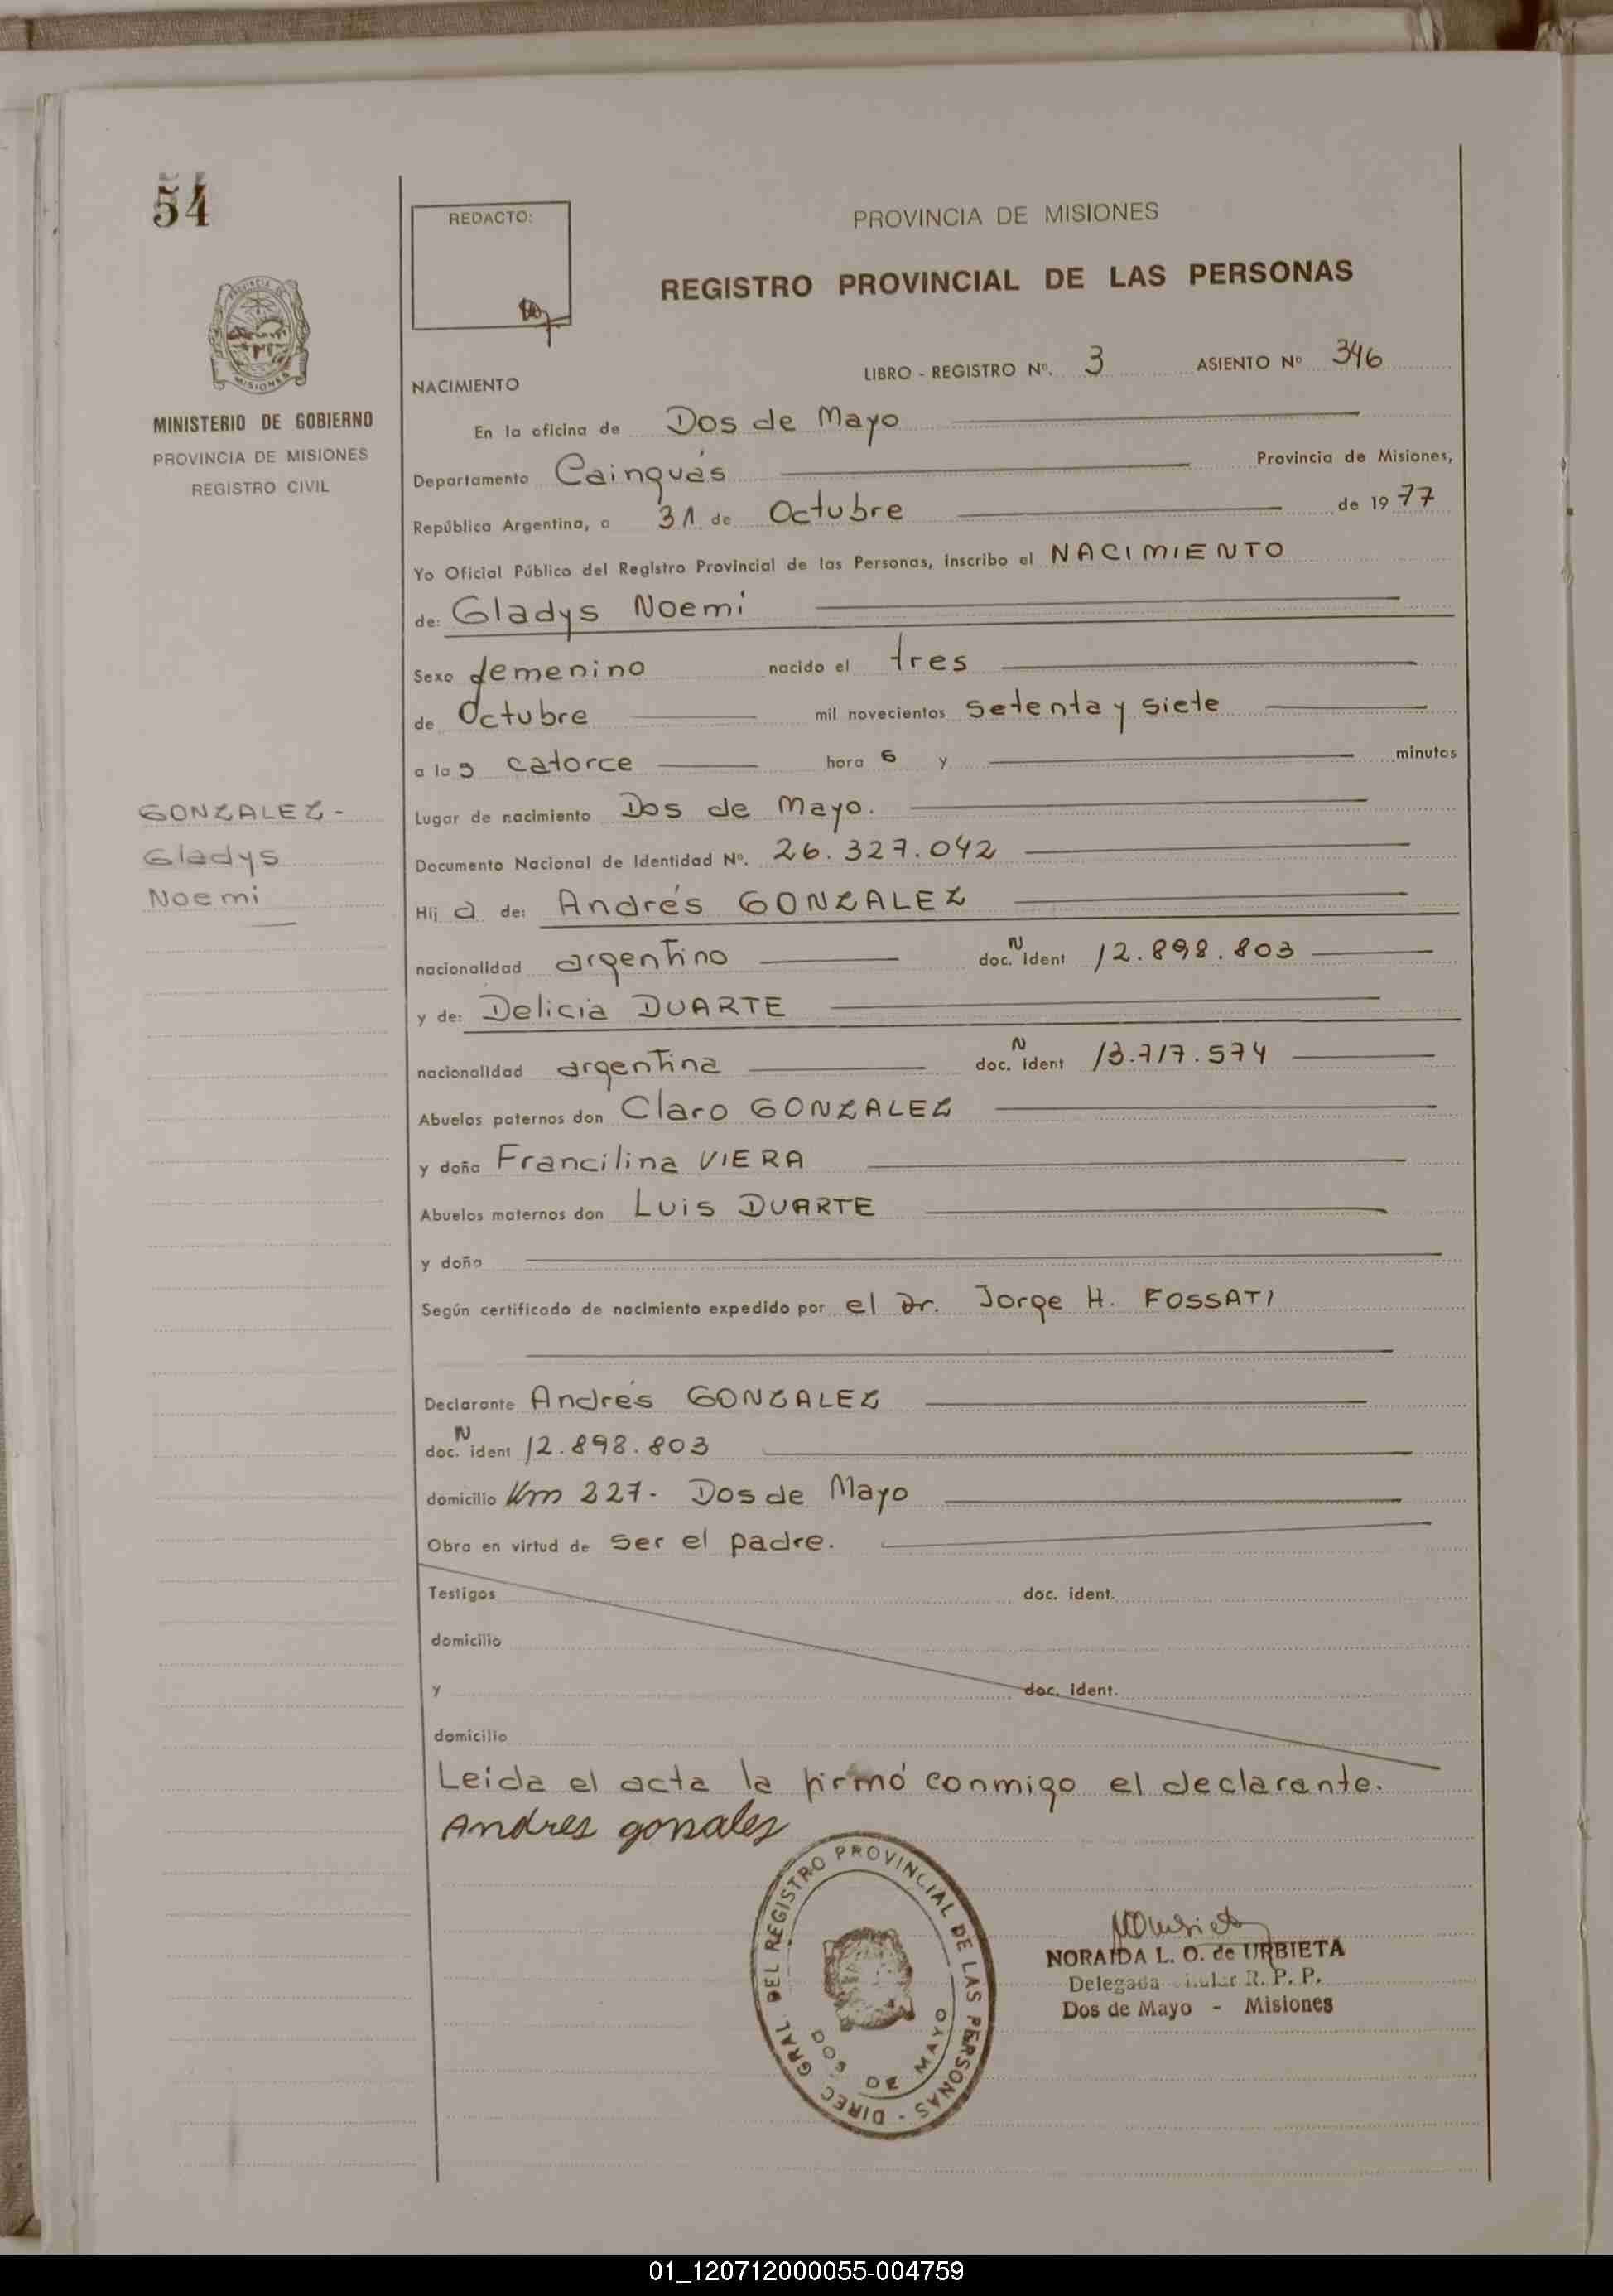 54
REDACTO:
PROVINCIA DE MISIONES
REGISTRO PROVINCIAL DE LAS PERSONAS
PROVINCIA DE
MISIONES
MINISTERIO DE GOBIERNO
PROVINCIA DE MISIONES
REGISTRO CIVIL
LIBRO - REGISTRO Nº. 3 ASIENTO Nº 346
NACIMIENTO
En la oficina de Dos de Mayo
Departamento Cainguás Provincia de Misiones,
República Argentina, a 31 de Octubre de 1977
Yo Oficial Público del Registro Provincial de las Personas, inscribo el NACIMIENTO
de: Gladys Noemí
Sexo femenino nacido el tres
de Octubre mil novecientos setenta y siete
a las catorce hora s y minutos
Lugar de nacimiento Dos de Mayo.
Documento Nacional de Identidad Nº. 26.327.042
GONZALEZ-
Gladys
Noemi
Hij a de: Andrés GONZALEZ
nacionalidad argentino doc. N ident 12.898.803
y de: Delicia DUARTE
nacionalidad argentina doc. N ident 13.717.574
Abuelos paternos don Claro GONZALEZ
y doña Francilina VIERA
Abuelos maternos don Luis DUARTE
y doña
Según certificado de nacimiento expedido por el Dr. Jorge H. FOSSATI
Declarante Andrés GONZALEZ
doc. N ident 12.898.803
domicilio Km 227- Dos de Mayo
Obra en virtud de ser el padre.
Testigos doc. ident.
domicilio
y doc. ident.
domicilio
Leida el acta la firmó conmigo el declarante.
Andres gonzales
DIREC GRAL DEL REGISTRO PROVINCIAL DE LAS PERSONAS -
DOS DE MAYO
NORAIDA L. O. de URBIETA
Delegada R. P. P.
Dos de Mayo - Misiones
01_120712000055-004759